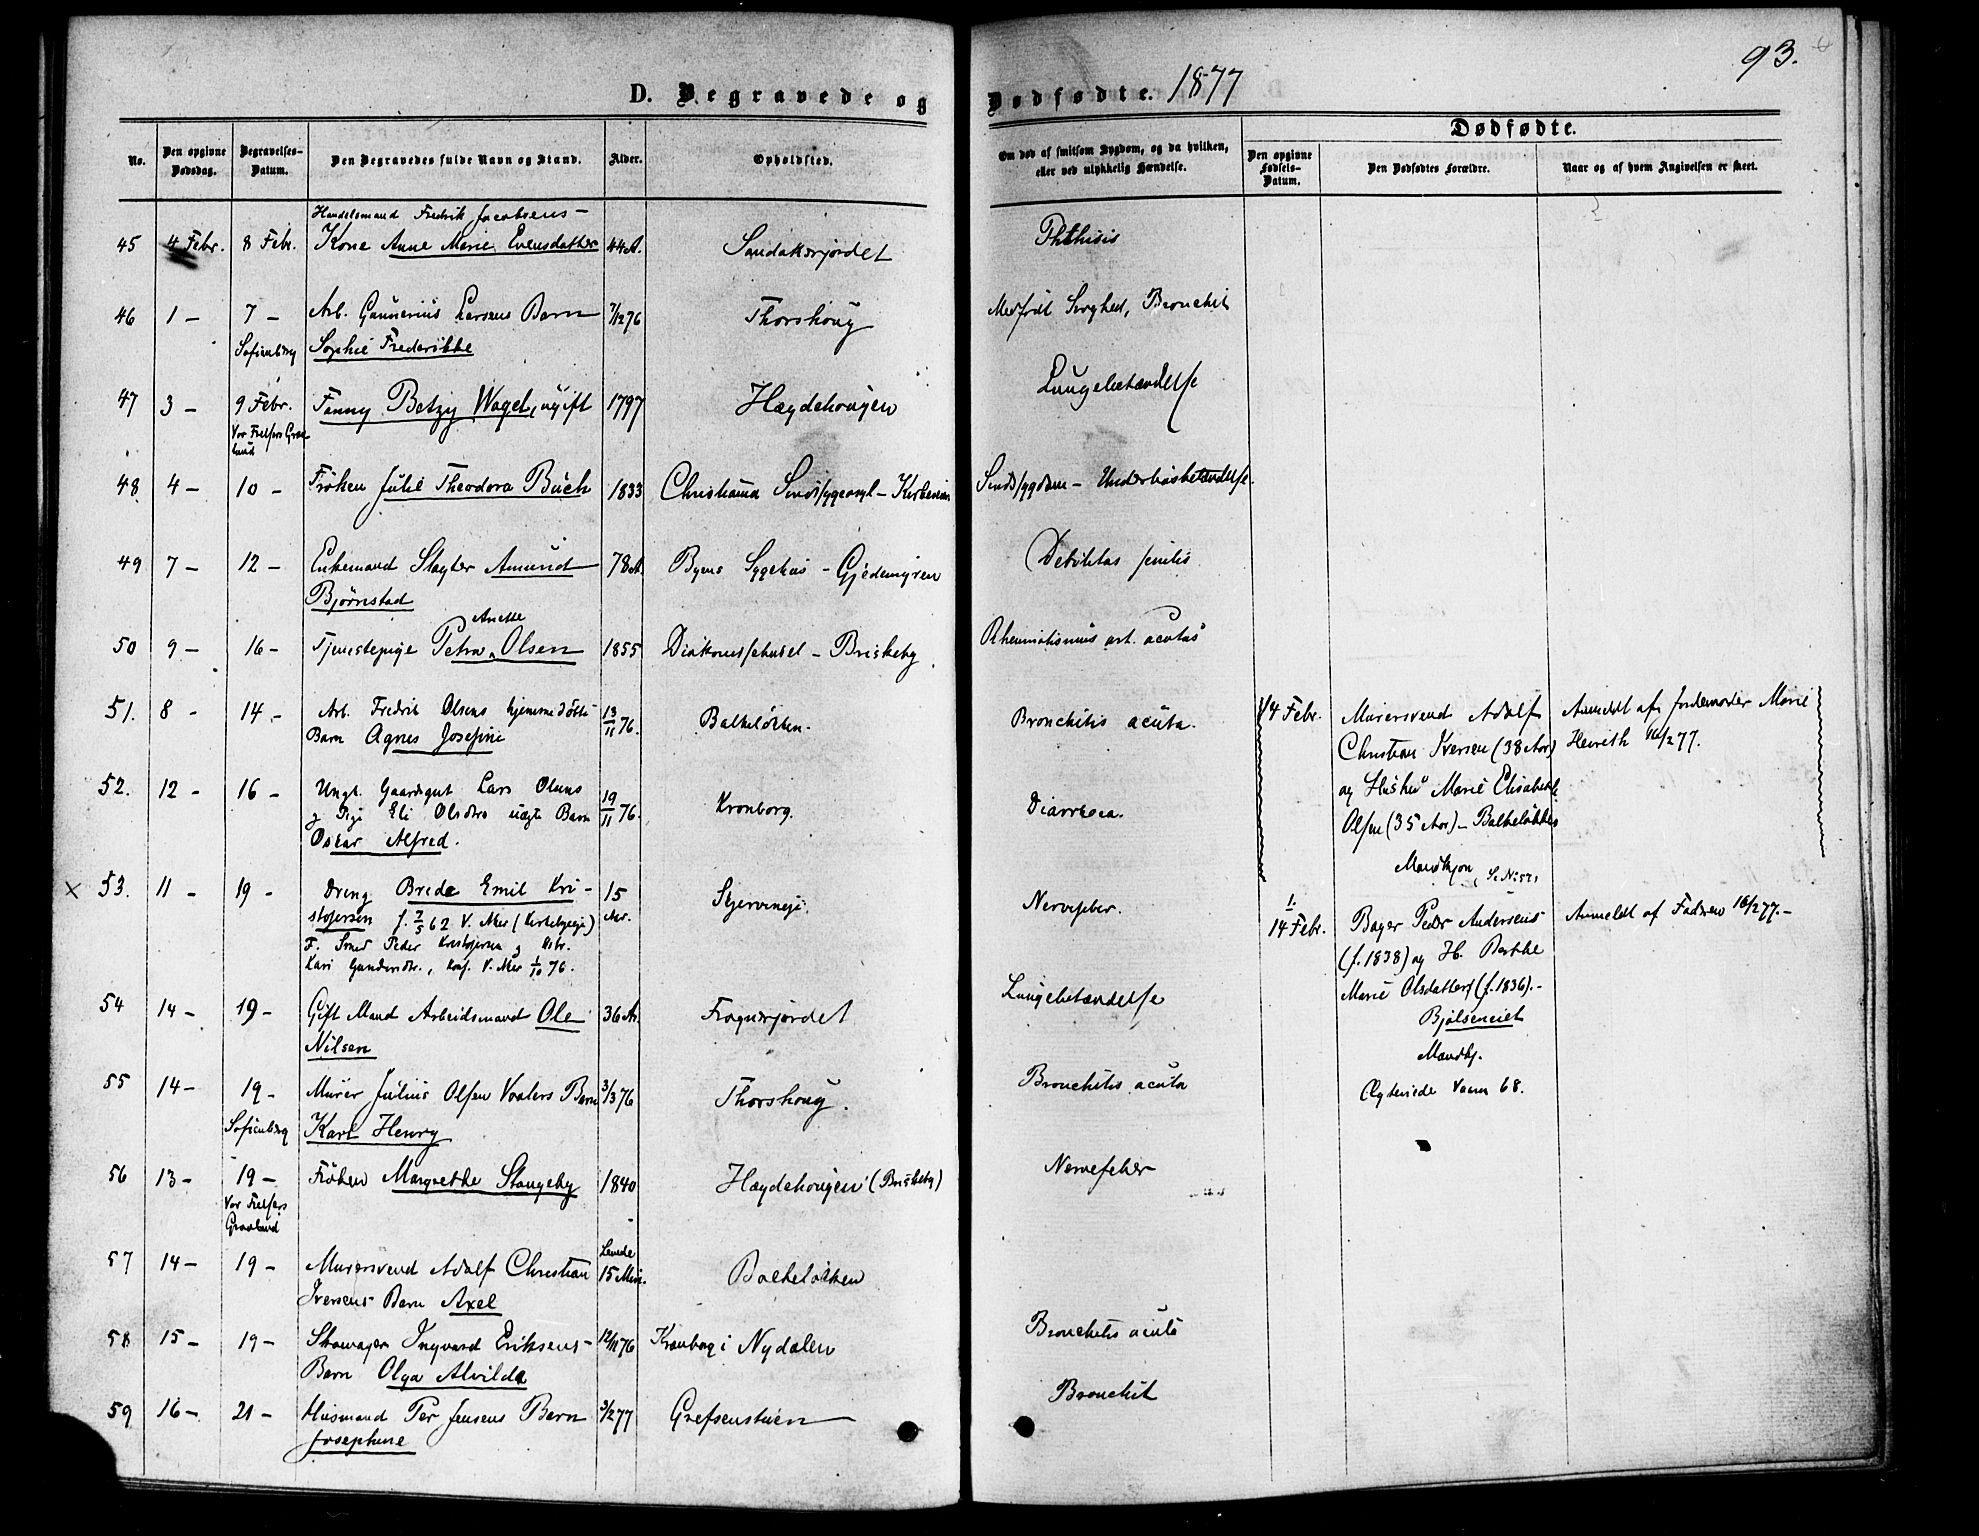 93.
D. Begravede og Dødfødte. 1877
No.
Den opgivne Dødsdag.
Begravelses-Datum.
Den Begravedes fulde Navn og Stand.
Alder.
Opholdsted.
Om død af smitsom Sygdom, og da hvilken, eller ved ulykkelig Hændelse.
Dødfødte.
Den opgivne Fødsels-Datum.
Den Dødfødtes Forældre.
Naar og af hvem Angivelsen er skeet.
Handelsmand Fredrik Jacobsens -
45 4 Febr. 8 Febr. Kone Anne Marie Evensdatter 44 A. Sandakerjordet Phthisis
46 1 - 7 - Arb. Gunnerius Larsens Barn 7/12 76 Thorshoug Medfødt Svaghed, Bronchit
Sofienberg Sophie Frederikke
47 3 - 9 Febr. Fanny Betzy Vogel, ugift 1797 Hægdehougen Lungebetændelse
Vor Frelsers Grav-
lund
48 4 - 10 - Frøken Julie Theodora Buch 1833 Christiania Sindssygeasyl - Kirkeveien Sindssygdom - Underlivsbetændelse.
49 7 - 12 - Enkemand Slagter Amund 78 A Byens Sygehus - Gjedemyren Debilitas senilis
Bjørnstad
Anette
50 9 - 16 - Tjenestepige Petra Olsen 1855 Diakonissehuset - Briskeby Rheumatismus art. acutus
51. 8 - 14 - Arb. Fredrik Olsens hjemmedøbte 13/11 76. Balkeløkken. Bronchitis acuta.
Barn Agnes Josefine
14 Febr. Murersvend Adolf Anmeldt af Jordemoder Marie
Christian Iversen (38 Aar) Henrith 16/2 77.
og Hustru Marie Elisabeth
Olsen (35 Aar) - Balkeløkken
Mandkjøn, Se No 57,
52. 12 - 16 - Ungk. Gaardsgut Lars Olsens 19/11 76. Kronborg. Diarrhoea.
og Pige Eli Olsdtrs uægte Barn
Oskar Alfred.
× 53. 11 - 19 - Dreng Brede Emil Kri- 15 Aar. Skjerveneje. Nervefeber.
stofersen f. 2/5 62 V. Aker (Kirkebyeje)
F. Smed Peder Kristofersen og Hstr.
Kari Gundersdtr., Konf. V. Aker 1/10 76.
1.
14 Febr. Bager Peder Andersens Anmeldt af Faderen 16/2 77. -
(f. 1838) og H. Berthe
Marie Olsdatter (f. 1836). -
Bjølseneiet
Mandkj.
Ægteviede Vaaren 68.
54 14 - 19 - Gift Mand Arbeidsmand Ole 36 Ar. Frognerjordet Lungebetændelse
Nilsen
55 14 - 19 - Murer Julius Olsen Vaalers Barn 3/3 76 Thorshoug. Bronchitis acuta
Sofienberg Karl Henry
56 13 - 19 - Frøken Margrethe Stangeby 1840 Hægdehougen (Briskeby) Nervefeber
Vor Frelsers
Gravlund
57 14 - 19 - Murersvend Adolf Christian Levede 15 Min. Balkeløkken
Iversens Barn Axel
58 15 - 19 - Skomager Ingvard Eriksens - 12/11 76 Kronborg i Nydalen Bronchitis acuta
Barn Olga Alvilda
59 16 - 21 - Husmand Per Jensens Barn 3/2 77 Grefsenstuen Bronchit
Josephine